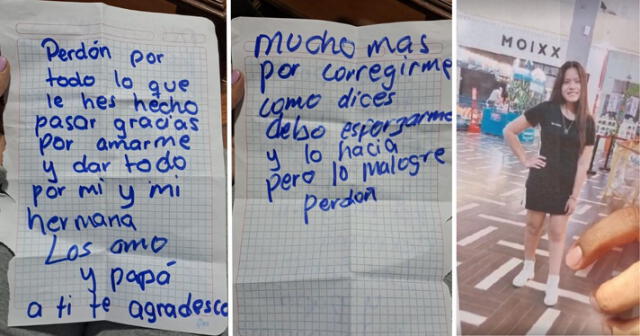 Perdón por
todo lo que
le hes hecho
pasar gracias
por amarme
y dar todo
por mi y mi
hermana
Los amo
y papá
a ti te agradesco
mucho mas
por corregirme
como dices
debo esforzarme
y lo hacia
pero lo malogre
perdón
MOIXX